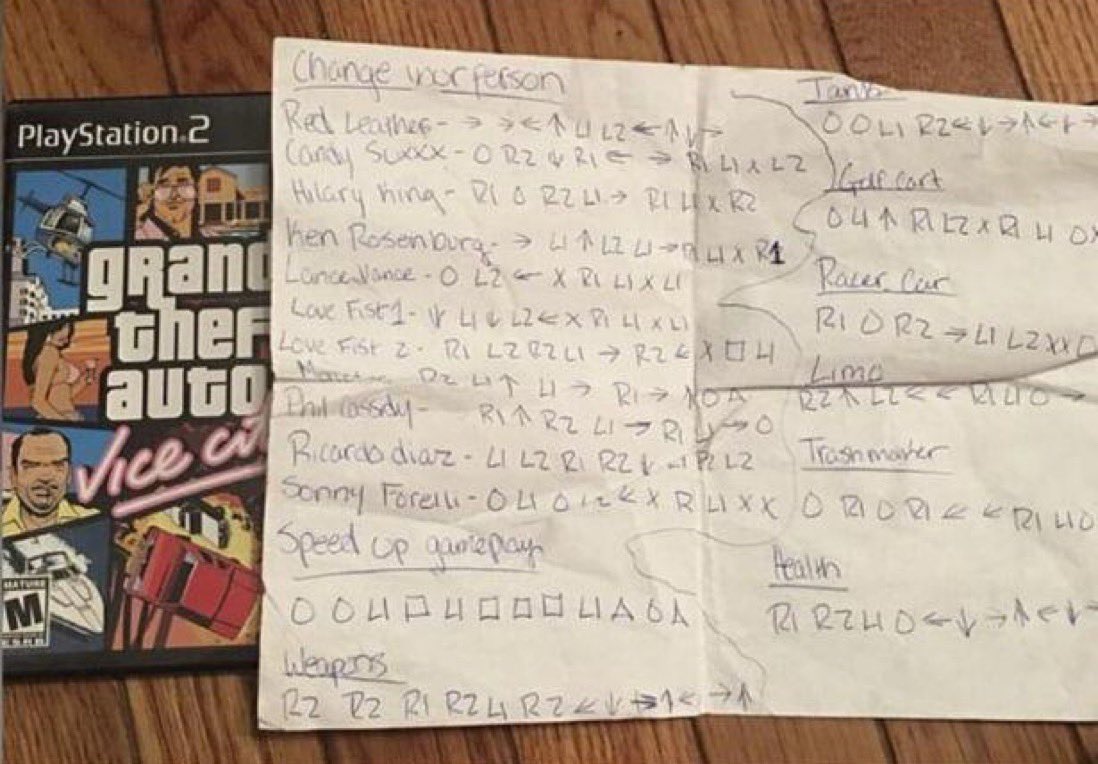 PlayStation.2
grand
theft
auto
Vice City
MATURE
M
Change inor person
Red Leather - → → ← ↑ L1 L2 ← ↑ ↓ →
Candy Suxxx - O R2 ↓ R1 ← → R1 L1 x L2
Hilary King - R1 O R2 L1 → R1 L1 x R2
Ken Rosenburg - → L1 ↑ L2 L1 → R1 L1 x R1
Lance Vance - O L2 ← x R1 L1 x L1
Love Fist 1 - ↓ L1 ↓ L2 ← x R1 L1 x L1
Love Fist 2 - R1 L2 R2 L1 → R2 ← x □ L1
R2 L1 ↑ L1 → R1 → ↑ O Δ
Phil Cassidy - R1 ↑ R2 L1 → R1 L1 → O
Ricardo diaz - L1 L2 R1 R2 ↓ L1 R2 L2
Sonny Forelli - O L1 O L2 ← x R L1 x x
Speed up gameplay
O O L1 □ L1 □ □ □ L1 Δ O Δ
Weapons
R2 R2 R1 R2 L1 R2 ← ↓ → ↑ ← → ↑
O O L1 R2 ← ↓ → ↑ ← ↓ →
Golf cart
O L1 ↑ R1 L2 x R1 L1 O x
Racer Car
R1 O R2 → L1 L2 x x □
Limo
R2 ↑ L2 ← ← R1 L1 O →
Trashmaker
O R1 O R1 ← ← R1 L1 O
Health
R1 R2 L1 O ← ↓ → ↑ ← ↓ →